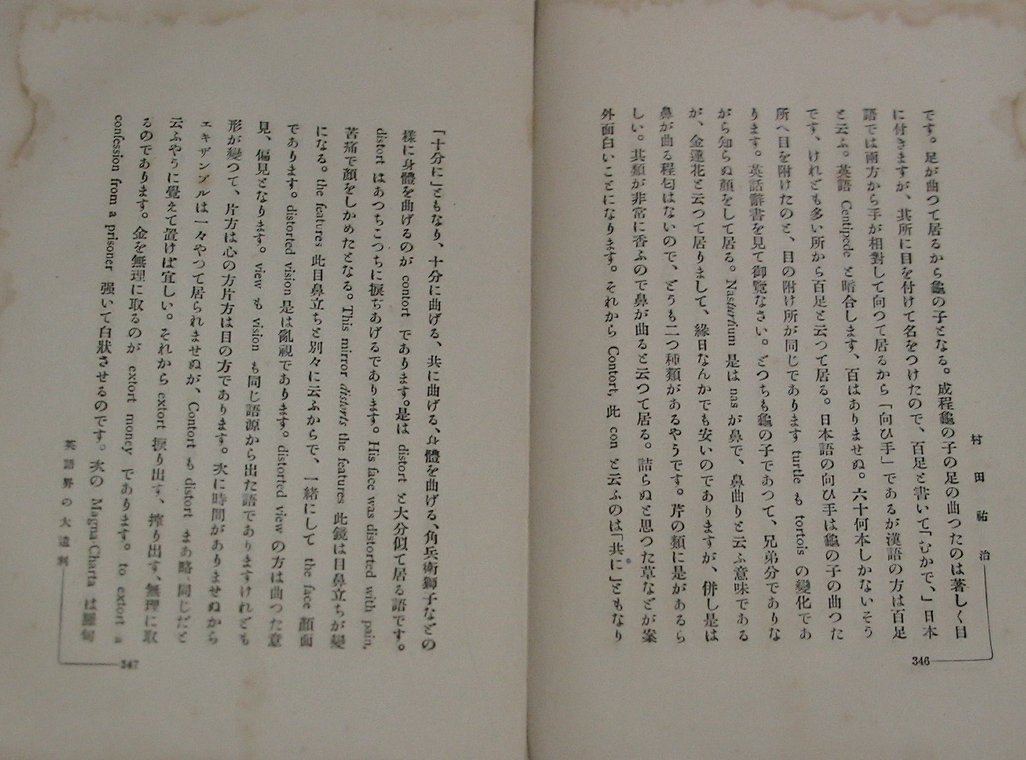 村田祐治
346
です。足が曲つて居るから龜の子となる。成程龜の子の足の曲つたのは著しく目
に付きますが、其所に目を付けて名をつけたので、百足と書いて「むかで、」日本
語では兩方から手が相對して向つて居るから「向ひ手」であるが漢語の方は百足
と云ふ。英語 Centipode と暗合します、百はありませぬ。六十何本しかないそう
です、けれども多い所から百足と云つて居る。日本語の向ひ手は龜の子の曲つた
所へ目を附けたのと、目の附け所が同じであります turtle も tortois の變化であ
ります。英話辭書を見て御覽なさい。どつちも龜の子であつて、兄弟分でありな
がら知らぬ顔をして居る。Nasturtium 是は nas が鼻で、鼻曲りと云ふ意味である
が、金蓮花と云つて居りまして、緣日なんかでも安いのでありますが、併し是は
鼻が曲る程匂はないので、どうも二つ種類があるやうです。芹の類に是があるら
しい。其類が非常に香ふので鼻が曲ると云つて居る。詰らぬと思つた草などが案
外面白いことになります。それから Contort, 此 con と云ふのは「共に」ともなり
「十分に」ともなり、十分に曲げる、共に曲げる、身體を曲げる、角兵衛獅子などの
樣に身體を曲げるのが contort であります。是は distort と大分似て居る語です。
distort はあつちこつちに捩ちあげるであります。His face was distorted with pain,
苦痛で顔をしかめたとなる。This mirror distorts the features 此鏡は目鼻立ちが變
になる。the features 此目鼻立ちと別々に云ふからで、一緒にして the face 顔面
であります。distorted vision 是は亂視であります。distorted view の方は曲つた意
見、偏見となります。view も vision も同じ語源から出た語でありますけれども
形が變つて、片方は心の方片方は目の方であります。次に時間がありませぬから
エキザンプルは一々やつて居られませぬが、Contort も distort まあ略同じだと
云ふやうに覺えて置けば宜しい。それから extort 捩り出す、搾り出す、無理に取
るのであります。金を無理に取るのが extort money であります。to extort a
confession from a prisoner 强いて白狀させるのです。次の Magna Charta は羅甸
英語界の大進
347